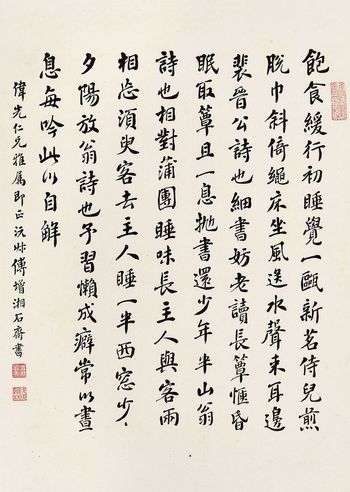 飽食緩行初睡覺一甌新茗侍兒煎
脫巾斜倚繩床坐風送水聲來耳邊
裴晉公詩也細書妨老讀長簟愜昏
眠取簟且一息拋書還少年半山翁
詩也相對蒲團睡味長主人與客兩
相忘須臾客去主人睡一半西窓少〻
夕陽放翁詩也予習懶成癖常以晝
息每吟此以自解
偉先仁兄雅属即正沅叔傅增湘石齋書